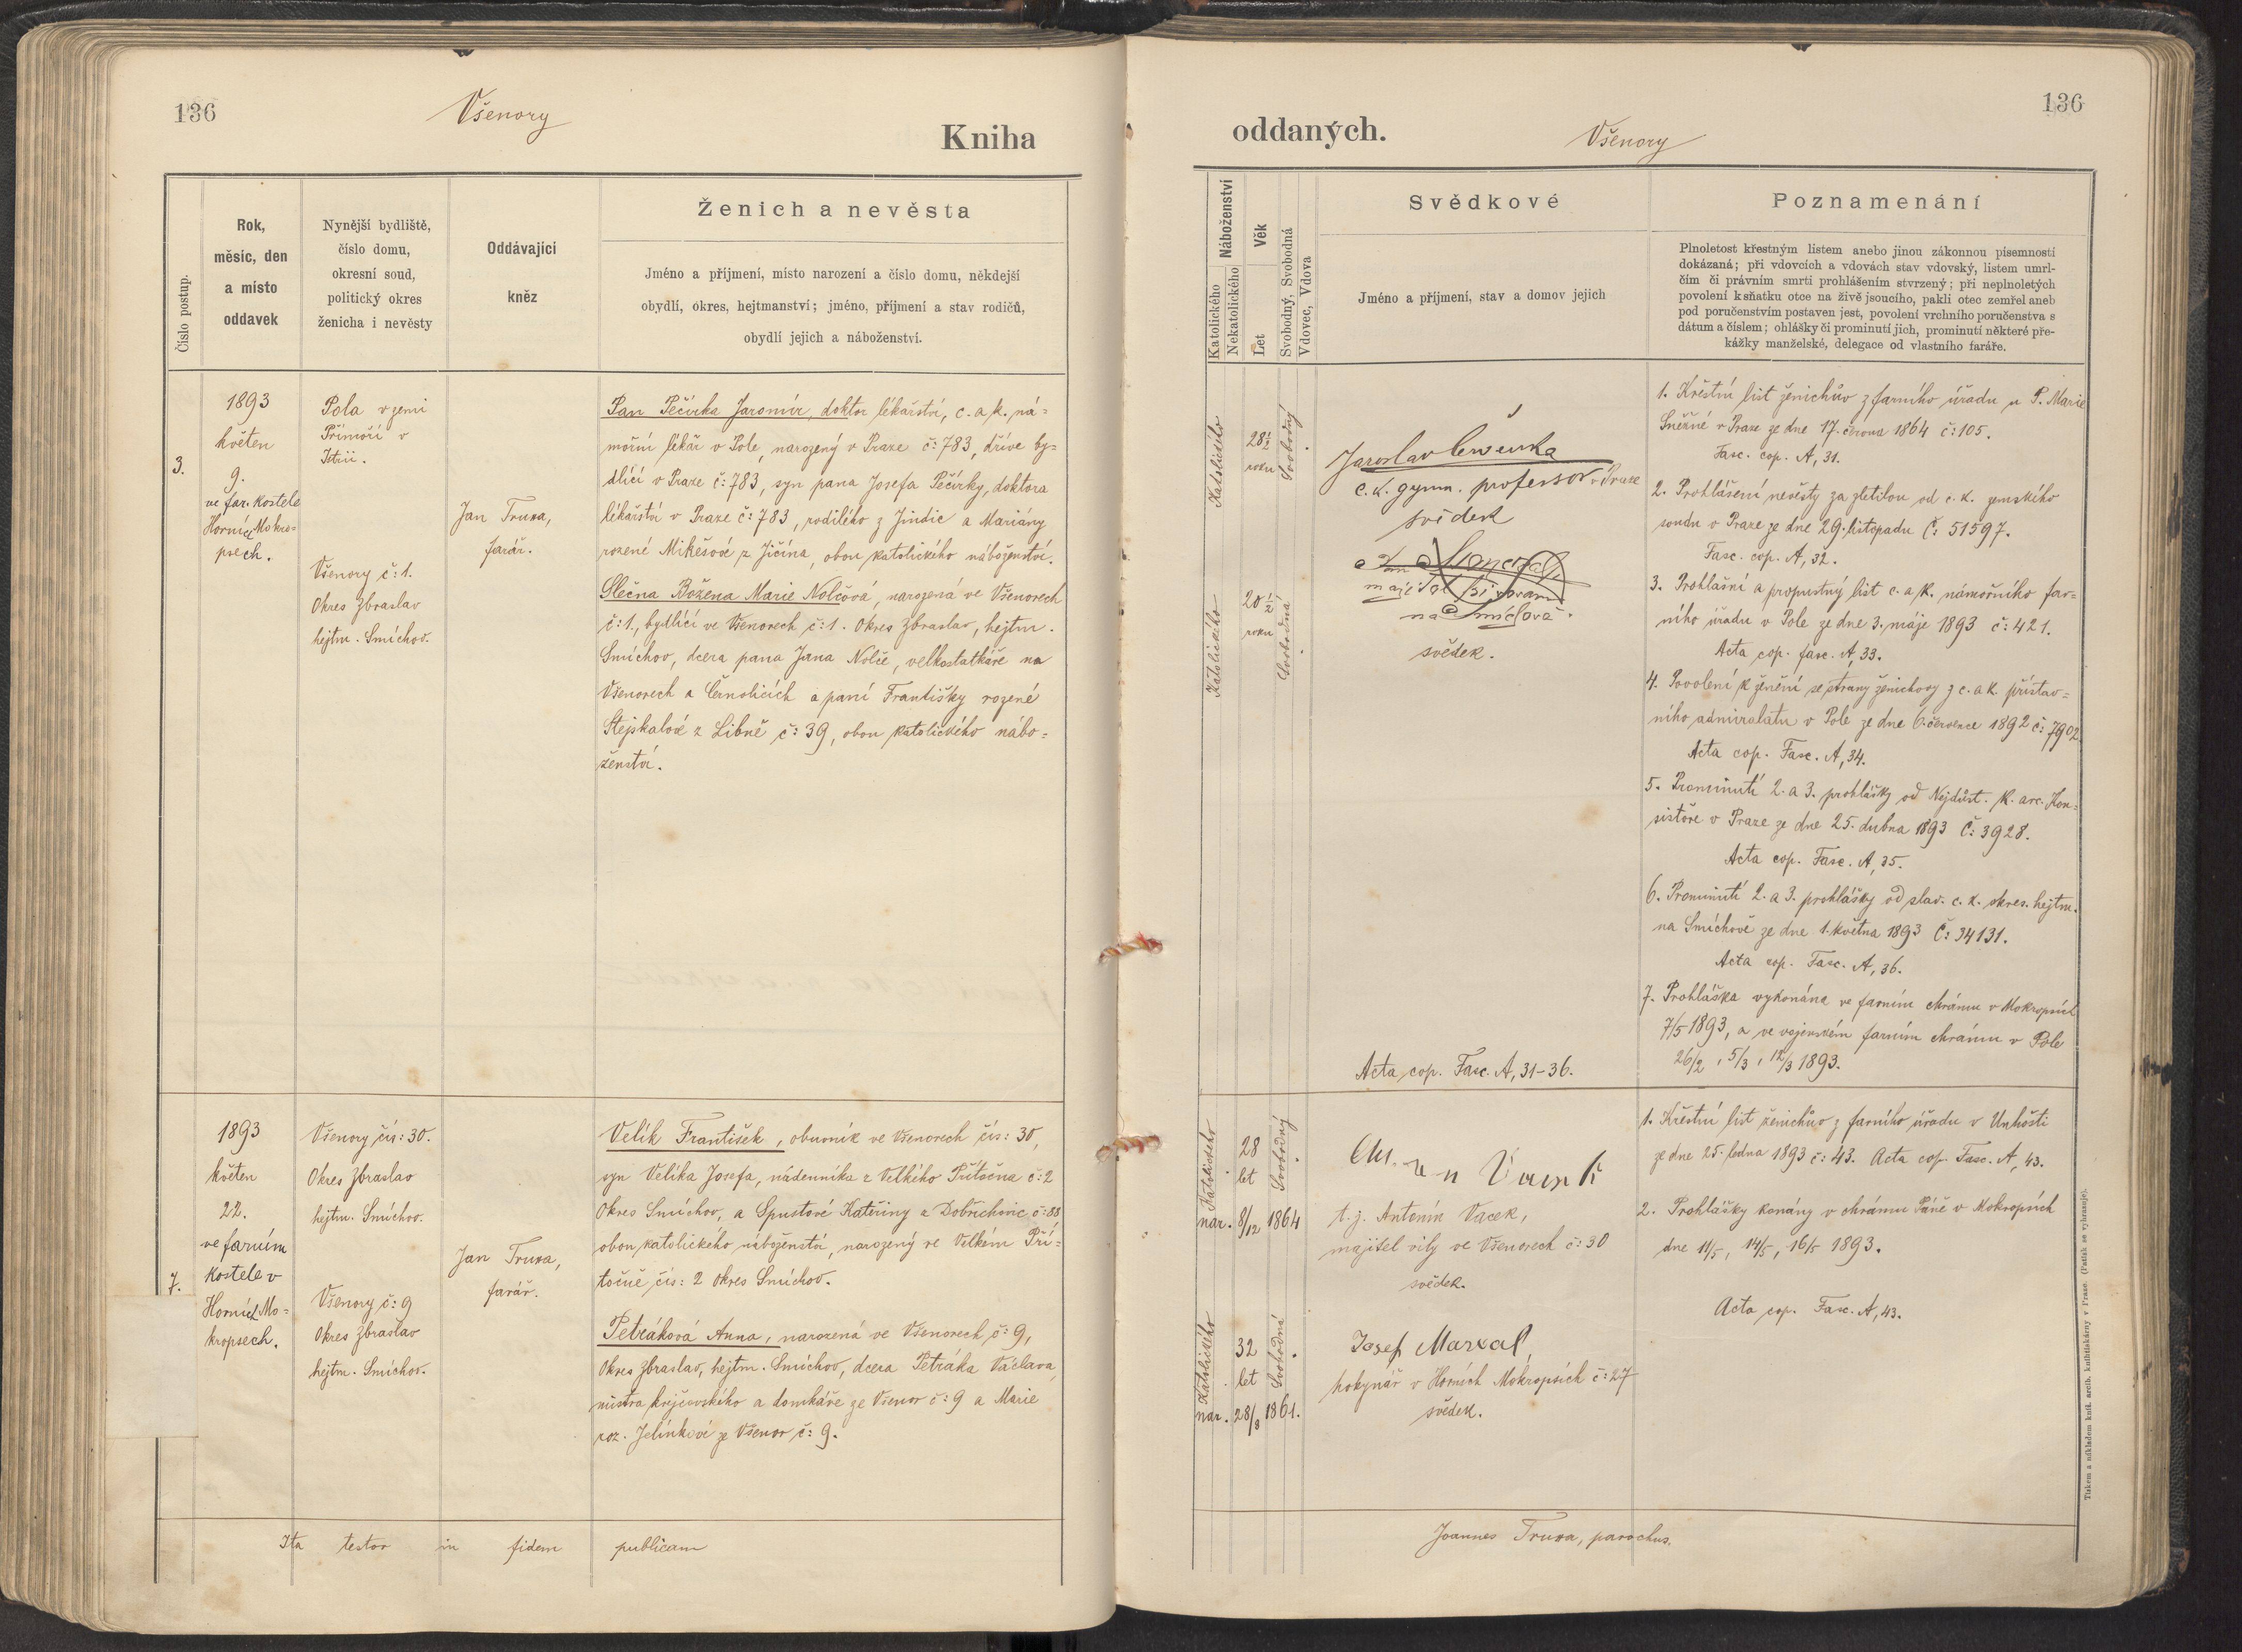 136
Všenory
Kniha
Číslo postup.
Rok,
měsíc, den
a místo
oddavek
Nynější bydliště,
číslo domu,
okresní soud,
politický okres
ženicha i nevěsty
Oddávající
kněz
Ženich a nevěsta
Jméno a příjmení, místo narození a číslo domu, někdejší
obydlí, okres, hejtmanství; jméno, příjmení a stav rodičů,
obydlí jejich a náboženství.
3.
1893
květen
9.
ve far. kostele
Horních Mokro-
psech.
Pola v zemi
Přímoří v
Istrii.
Všenory č: 1.
Okres Zbraslav
hejtm. Smíchov.
Jan Truxa,
farář.
Pan Pečírka Jaromír, doktor lékařství, c. a k. ná=
mořní lékař v Pole, narozený v Praze č: 783, dříve by=
dlící v Praze č: 783, syn pana Josefa Pečírky, doktora
lékařství v Praze č: 783, rodilého z Jindic a Mariány
rozené Mikešové z Jičína, obou katolického náboženství.
Slečna Božena Marie Nolčová, narozená ve Všenorech
č: 1., bydlící ve Všenorech č: 1. Okres Zbraslav, hejtm.
Smíchov, dcera pana Jana Nolče, velkostatkáře na
Všenorech a Černolicích a paní Františky rozené
Stejskalové z Libně č: 39, obou katolického nábo=
ženství.
7.
1893
květen
22.
ve farním
kostele v
Horních Mo=
kropsech.
Všenory čís: 30.
Okres Zbraslav
hejtm. Smíchov.
Všenory č: 9
Okres Zbraslav
hejtm. Smíchov.
Jan Truxa,
farář.
Velík František, obuvník ve Všenorech čís: 30,
syn Velíka Josefa, nádenníka z Velkého Přítočna č: 2
Okres Smíchov, a Spustové Kateřiny z Dobřichovic č: 38
obou katolického náboženství, narozený ve Velkém Pří=
točně čís: 2 Okres Smíchov.
Petráková Anna, narozená ve Všenorech č: 9,
Okres Zbraslav, hejtm. Smíchov, dcera Petráka Václava,
mistra krejčovského a domkáře ze Všenor č: 9 a Marie
roz. Jelínkové ze Všenor č: 9.
Ita testor in fidem publicam
136
oddaných.
Všenory
Náboženství
Katolického
Nekatolického
Věk
Let
Svobodný, Svobodná
Vdovec, Vdova
Svědkové
Jméno a příjmení, stav a domov jejich
Poznamenání
Plnoletost křestným listem anebo jinou zákonnou písemností
dokázaná; při vdovcích a vdovách stav vdovský, listem úmrt-
ním či právním smrti prohlášením stvrzený; při neplnoletých
povolení k sňatku otce na živě jsoucího, pakli otec zemřel aneb
pod poručenstvím postaven jest, povolení vrchního poručenstva s
dátum a číslem; ohlášky či prominutí jich, prominutí některé pře-
kážky manželské, delegace od vlastního faráře.
Katolického
28½
roku
Svobodný
Katolického
20½
roku
Svobodná
Jaroslav
c. k. gymn. professor v Praze
svědek
na Smíchově.
svědek.
Acta cop. Fasc. A, 31–36.
1. Křestní list ženichův z farního úřadu u P. Marie
Sněžné v Praze ze dne 17. června 1864 č: 105.
Fasc. cop. A, 31.
2. Prohlášení nevěsty za zletilou od c. k. zemského
soudu v Praze ze dne 29. listopadu Č: 51597.
Fasc. cop. A, 32.
3. Prohlašní a propustný list c. a k. námořního far=
ního úřadu v Pole ze dne 3. máje 1893 č: 421.
Acta cop. fasc. A, 33.
4. Povolení k ženění se strany ženichovy z c. a k. přístav=
ního admirálátu v Pole ze dne 6. července 1892 č: 7902.
Acta cop. Fasc. A, 34.
5. Prominutí 2. a 3. prohlášky od Nejdůst. k. arc. Kon=
sistoře v Praze ze dne 25. dubna 1893 Č: 3928.
Acta cop. Fasc. A, 35.
6. Prominutí 2. a 3. prohlášky od slav. c. k. okres. hejtm.
na Smíchově ze dne 1. května 1893 Č: 34131.
Acta cop. Fasc. A, 36.
7. Prohláška vykonána ve farním chrámu v Mokropsích
7/5 1893, a ve vojenském farním chrámu v Pole
26/2, 5/3, 12/3 1893.
Katolického
28
let
Svobodný
nar. 8/12 1864
Katolického
32
let
Svobodná
nar. 28/8 1861.
t. j. Antonín Vacek,
majitel vily ve Všenorech č: 30
svědek.
Josef Maxal,
hokynář v Horních Mokropsích č: 27
svědek.
1. Křestní list ženichův z farního úřadu v Unhošti
ze dne 25. ledna 1893 č: 43. Acta cop. Fasc. A, 43.
2. Prohlášky konány v chrámu Páně v Mokropsích
dne 11/5, 14/5, 16/5 1893.
Acta cop. Fasc. A, 43.
Joannes Truxa, parochus.
Tiskem a nákladem kníž. arcib. knihtiskárny v Praze. (Patisk se vyhrazuje).